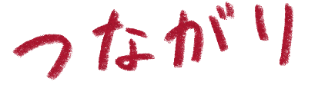 つながり